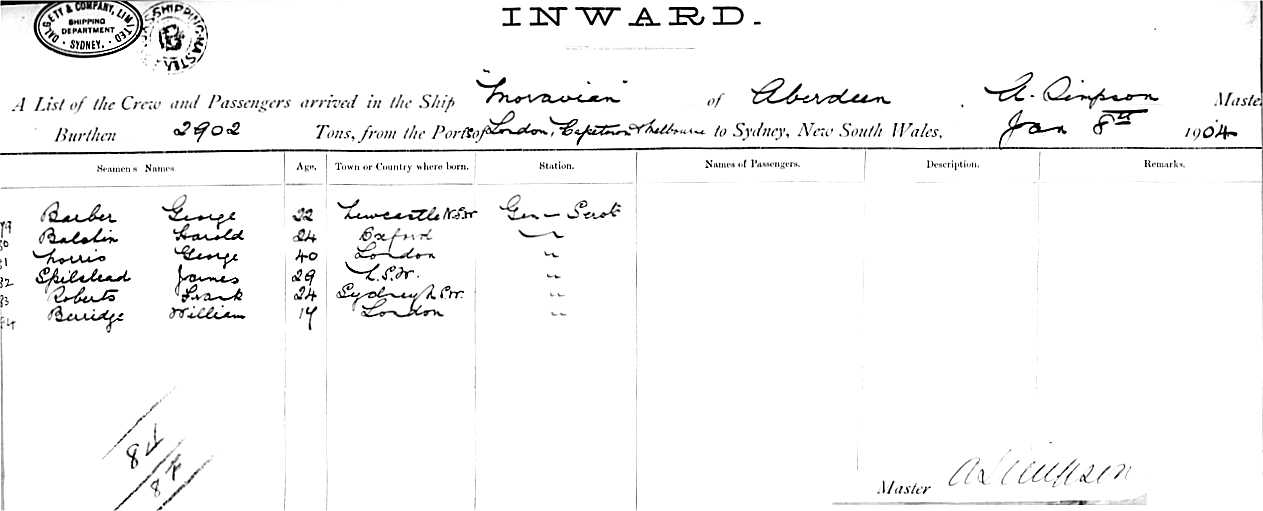 DALGETY & COMPANY, LIMITED
SHIPPING
DEPARTMENT
SYDNEY.
SHIPPING MASTER
INWARD.
A List of the Crew and Passengers arrived in the Ship "Moravian" of Aberdeen, A. Simpson Master
Burthen 2902 Tons, from the Ports of London, Capetown & Melbourne to Sydney, New South Wales, Jan 8th 1904
Seamen's Names. Age. Town or Country where born. Station. Names of Passengers. Description. Remarks.
79 Barber George 22 Newcastle N.S.W Gen
80 Harold 24 Oxford "
81 Norris George 40 London "
82 Spilstead James 29 N.S.W. "
83 Roberts Frank 24 Sydney N.S.W. "
84 Berridge William 17 London "
84
84
Master A Simpson